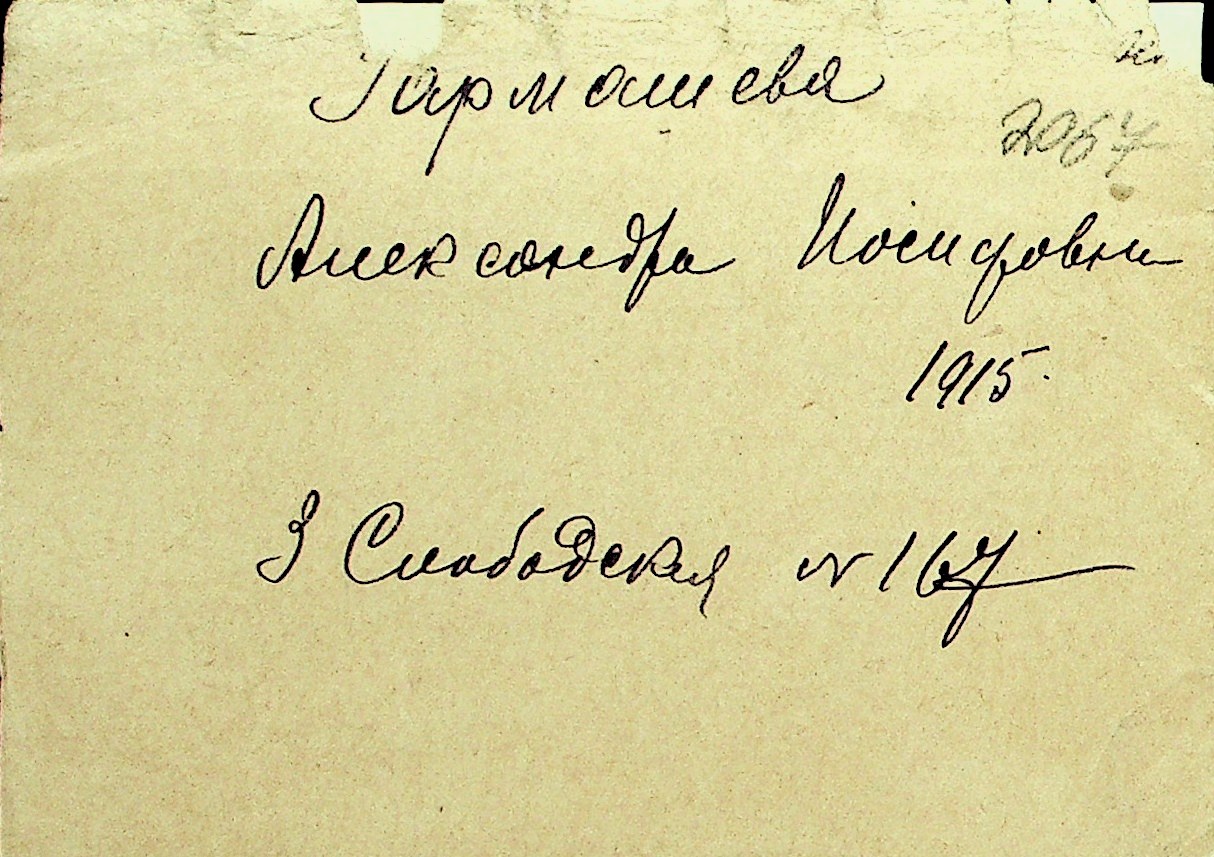 Гармашева
2057
Александра Иосифовна
1915.
3 Слободская № 167